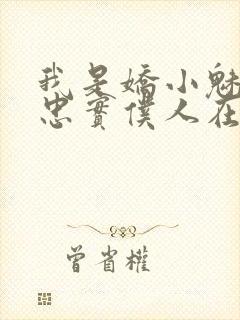 我是嬌小魅
忠實僕人在
曾省權